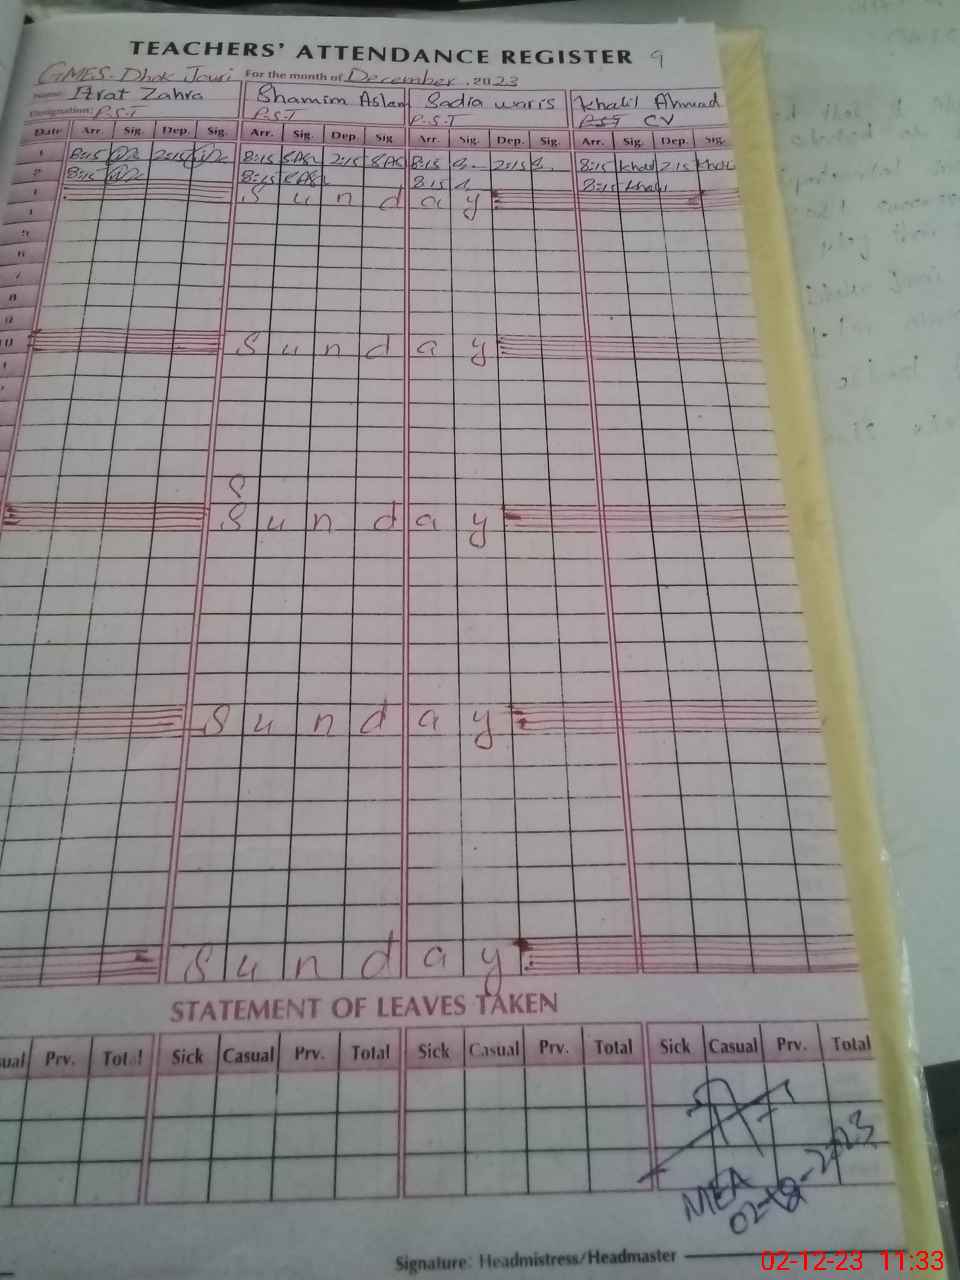 TEACHERS' ATTENDANCE REGISTER 9
GMES. Dhok Jouri For the month of December, 2023
Name: Zahra Shamim Aslam Sadia waris Khalil Ahmad
Designation: P.S.T P.S.T P.S.T PST CV
Date Arr. Sig. Dep. Sig. Arr. Sig. Dep. Sig. Arr. Sig. Dep. Sig. Arr. Sig. Dep. Sig.
1 8:15 2:15 8:15 2:15 8:15 2:15 8:15 Khalil 2:15 Khalil
2 8:15 8:15 8:15 8:15 Khalil
Sunday
Sunday
S
Sunday
Sunday
Sunday
STATEMENT OF LEAVES TAKEN
ual Prv. Total Sick Casual Prv. Total Sick Casual Prv. Total Sick Casual Prv. Total
MEA
02-12-2023
Signature: Headmistress/Headmaster
02-12-23 11:33